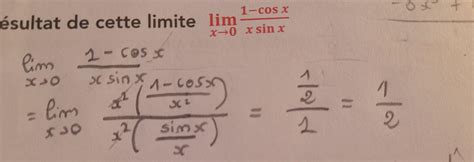 ésultat de cette limite lim x→0 1−cos x / x sin x
lim x→0 1 - cos x / x sin x
= lim x→0 x² (1 - cos x / x²) / x² (sin x / x) = 1/2 / 1 = 1/2